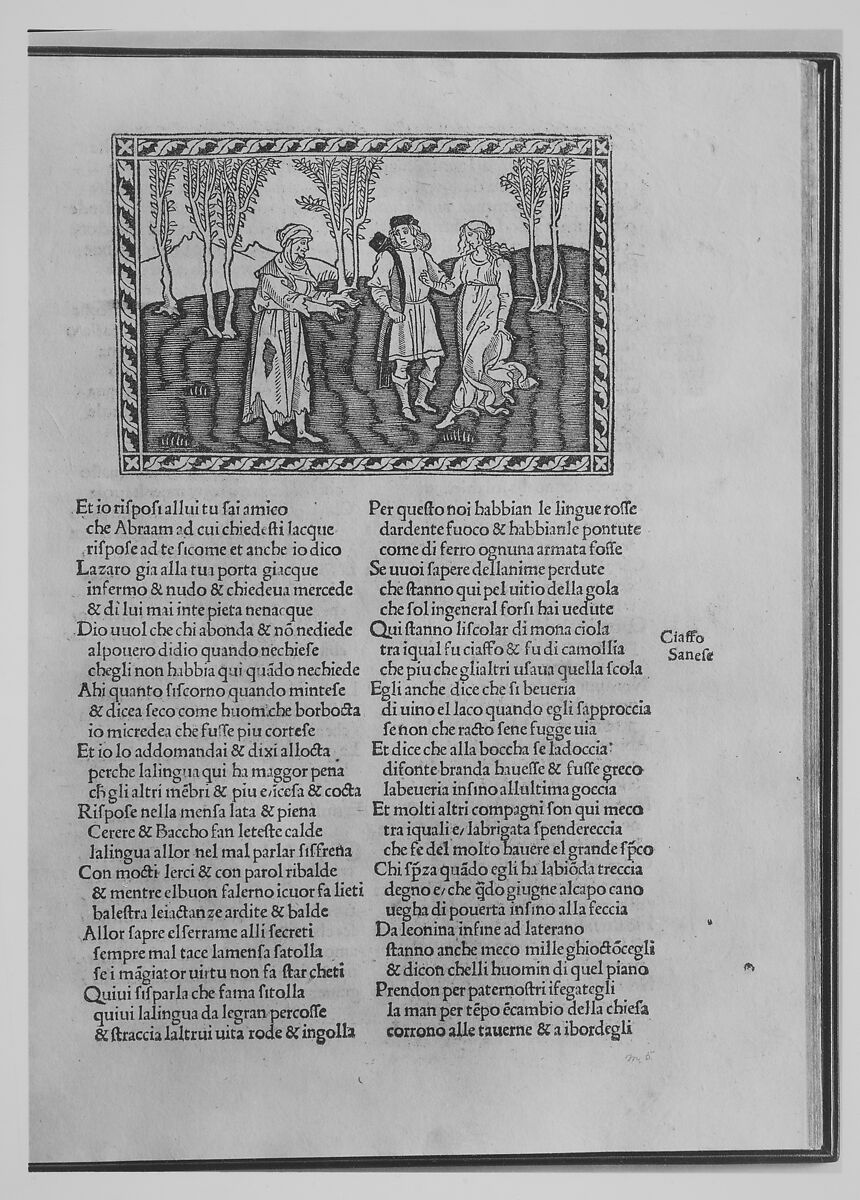 Et io riſpoſi allui tu ſai amico
che Abraam ad cui chiedeſti lacque
riſpoſe ad te ſicome et anche io dico
Lazaro gia alla tua porta giacque
infermo & nudo & chiedeua mercede
& di lui mai inte pieta nenacque
Dio uuol che chi abonda & nõ nediede
alpouero didio quando nechieſe
chegli non habbia qui quãdo nechiede
Ahi quanto ſiſcorno quando minteſe
& dicea ſeco come huom che borbocta
io micredea che fuſſe piu corteſe
Et io lo addomandai & dixi allocta
perche lalingua qui ha maggor pena
ch̃ gli altri mẽbri & piu e/ iceſa & cocta
Riſpoſe nella menſa lata & piena
Cerere & Baccho fan leteſte calde
lalingua allor nel mal parlar ſiſfrena
Con mocti lerci & con parol ribalde
& mentre elbuon falerno icuor fa lieti
baleſtra leiactanze ardite & balde
Allor ſapre elſerrame alli ſecreti
ſempre mal tace lamenſa ſatolla
ſe i mãgiator uirtu non fa ſtar cheti
Quiui ſiſparla che fama ſitolla
quiui lalingua da legran percoſſe
& ſtraccia laltrui uita rode & ingolla
Per queſto noi habbian le lingue roſſe
dardente fuoco & habbianle pontute
come di ferro ognuna armata foſſe
Se uuoi ſapere dellanime perdute
che ſtanno qui pel uitio della gola
che ſol ingeneral forſi hai uedute
Qui ſtanno liſcolar di mona ciola
tra iqual fu ciaffo & fu di camollia
che piu che glialtri uſaua quella ſcola
Egli anche dice che ſi beueria
di uino el laco quando egli ſapproccia
ſe non che racto ſene fugge uia
Et dice che alla boccha ſe ladoccia
difonte branda haueſſe & fuſſe greco
labeueria inſino allultima goccia
Et molti altri compagni ſon qui meco
tra iquali e/ labrigata ſpendereccia
che fe del molto hauere el grande ſp̃co
Chi ſp̃za quãdo egli ha labiõda treccia
degno e/ che q̃do giugne alcapo cano
uegha di pouerta inſino alla feccia
Da leonina infine ad laterano
ſtanno anche meco mille ghioctõcegli
& dicon chelli huomin di quel piano
Prendon per paternoſtri ifegategli
la man per tẽpo ẽcambio della chieſa
corrono alle tauerne & a ibordegli
Ciaffo
Saneſe